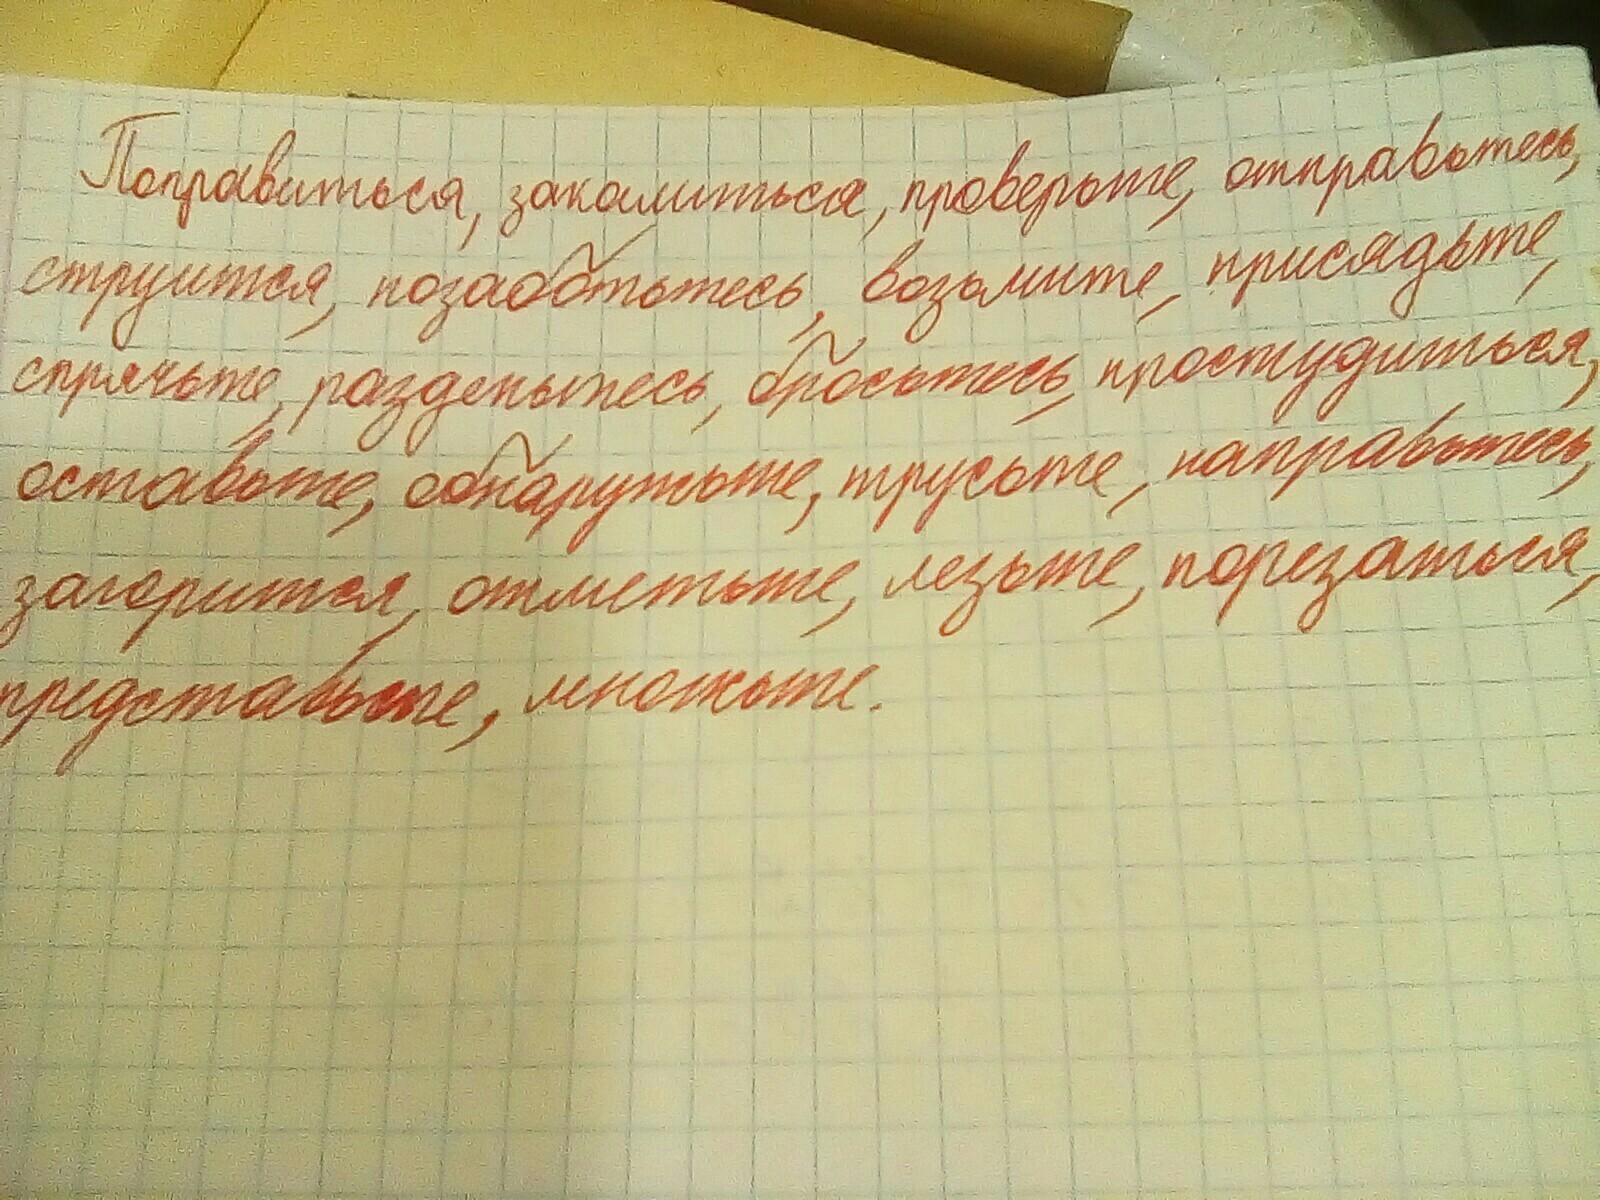 Поправиться, закалиться, проверьте, отправьтесь,
струится, позаботьтесь, возьмите, присядьте,
спрячьте, разденьтесь, бросьтесь, простудиться,
оставьте, обнаружьте, трусьте, направьтесь,
загорится, отметьте, лезьте, порезаться,
представьте, множьте.